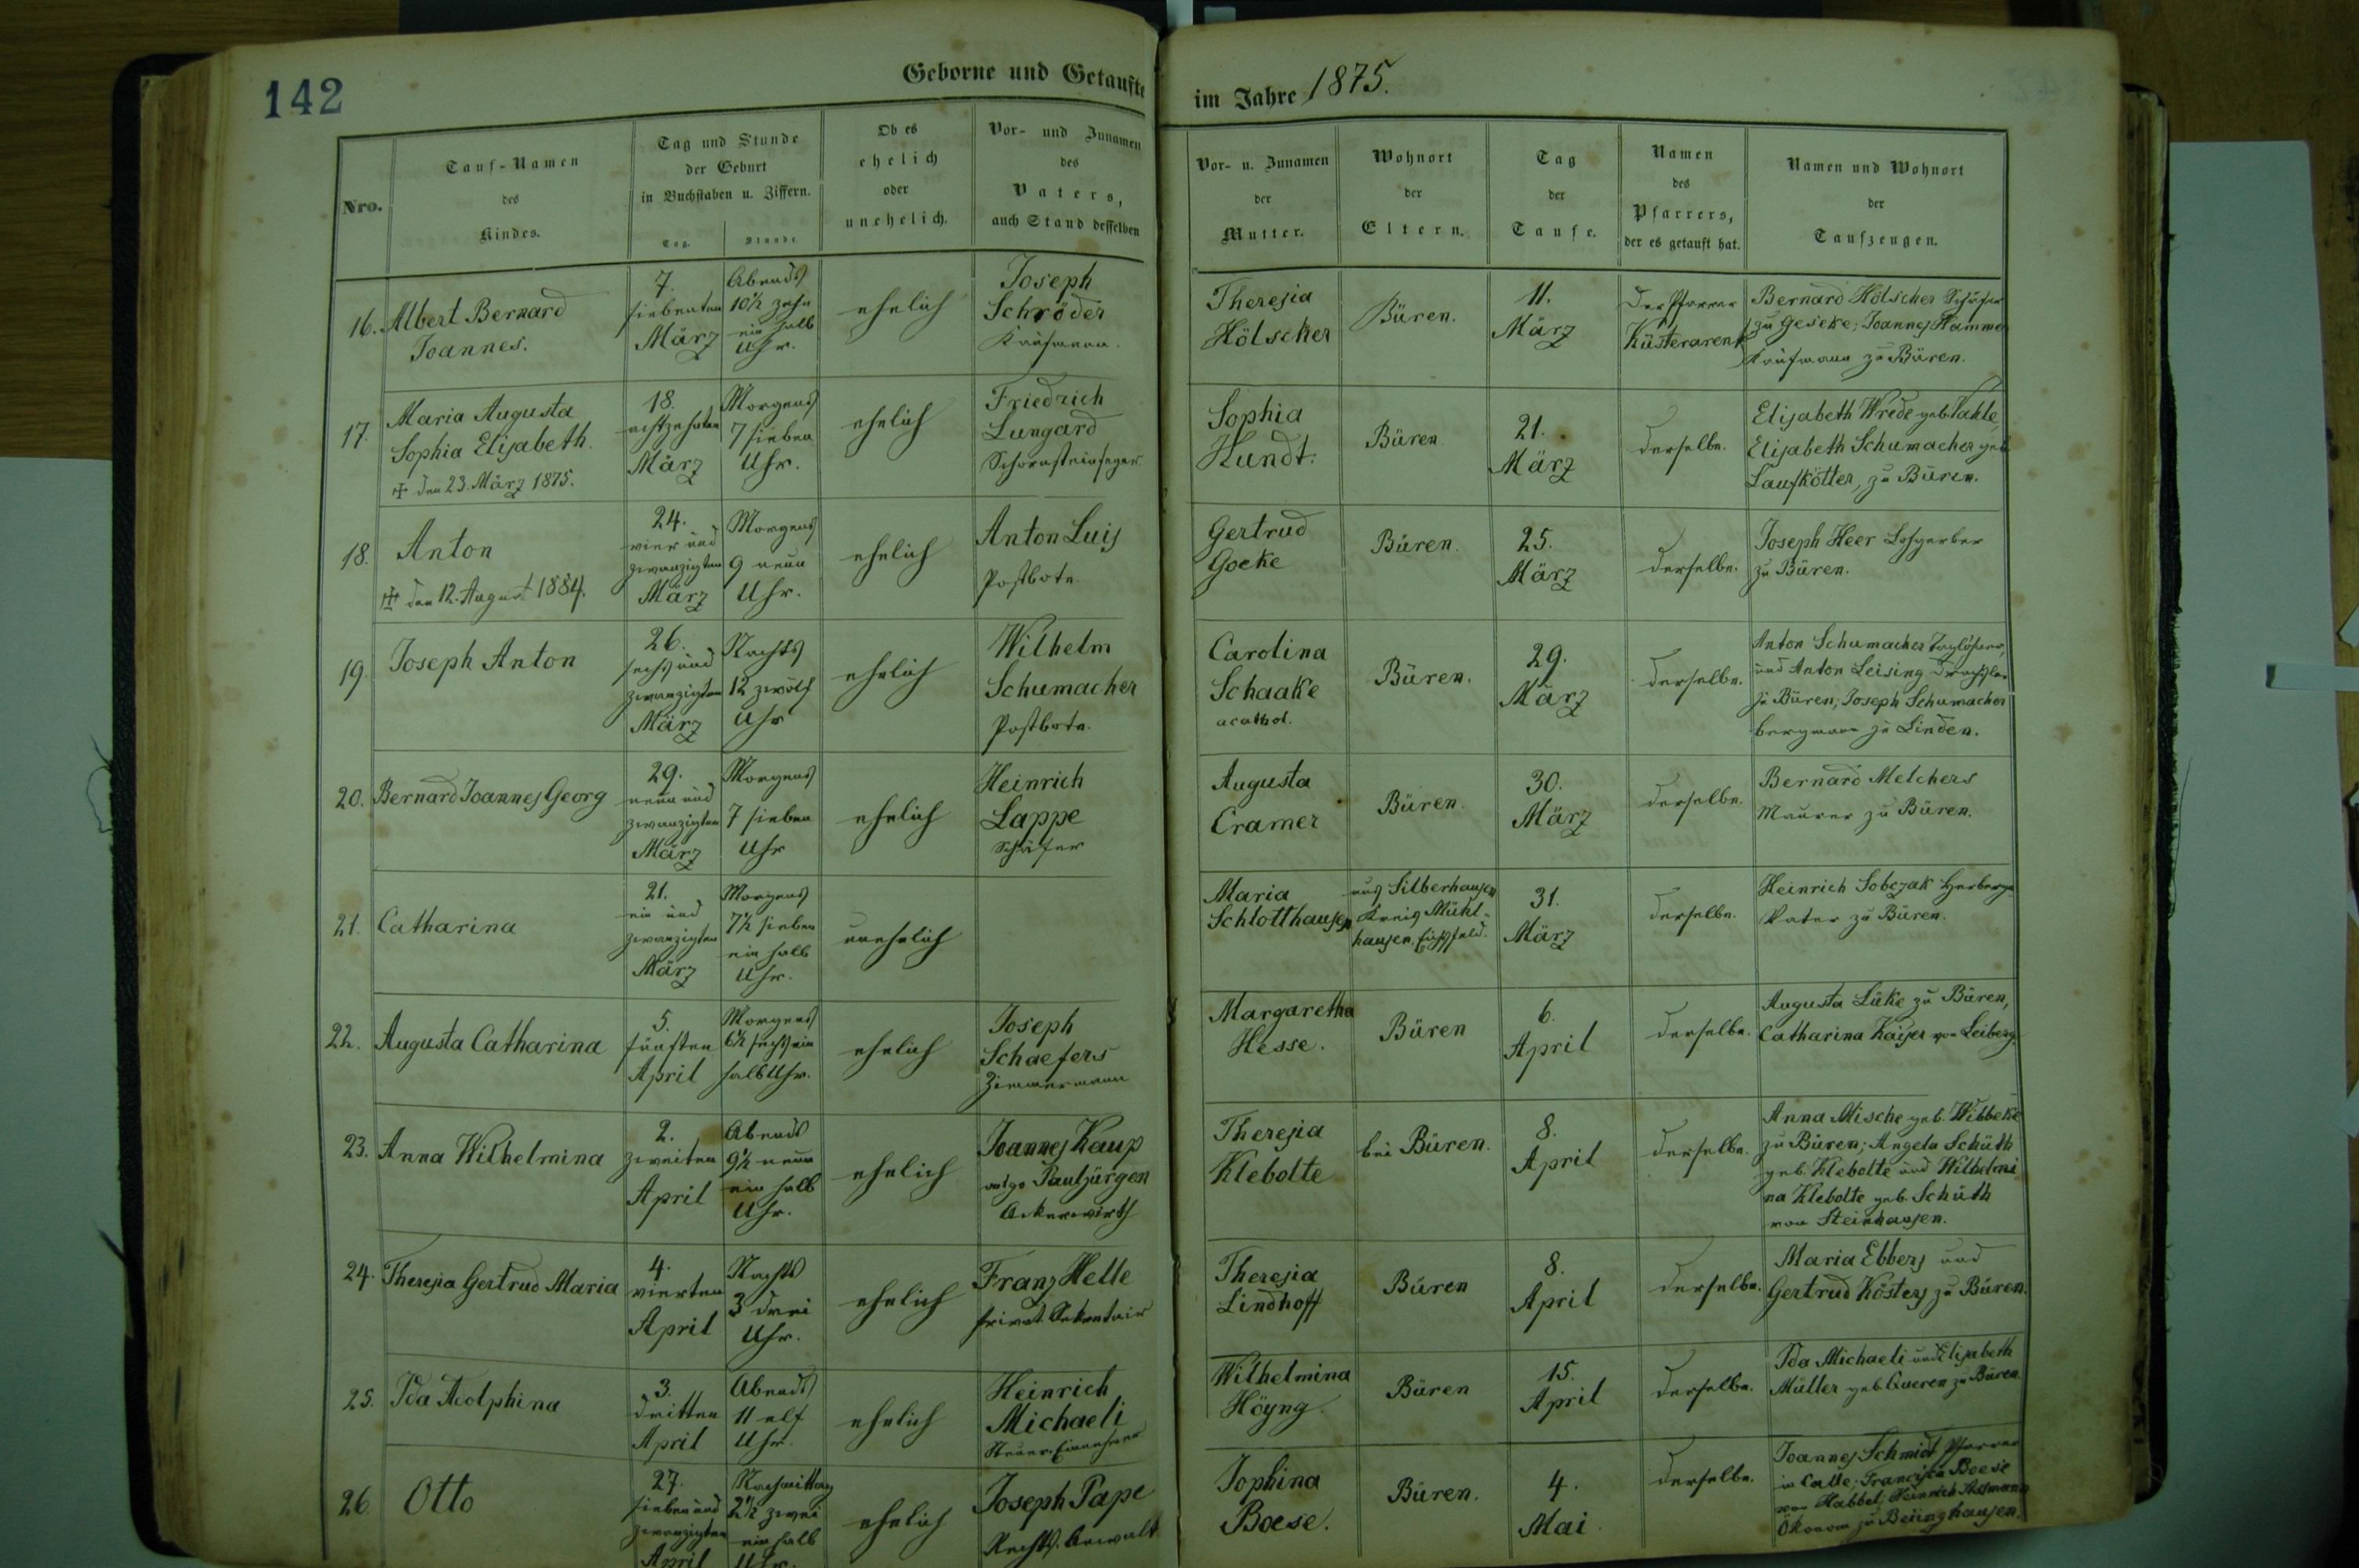 142
Geborne und Getaufte
im Jahre 1875.
Nro.
Tauf-Namen
des
Kindes.
Tag und Stunde
der Geburt
in Buchstaben u. Ziffern.
Tag. Stunde
Ob es
ehelich
oder
unehelich.
Vor- und Zunamen
des
Vaters,
auch Stand desselben
Vor- u. Zunamen
der
Mutter.
Wohnort
der
Eltern.
Tag
der
Taufe.
Namen
des
Pfarrers,
der es getauft hat.
Namen und Wohnort
der
Taufzeugen.
16. Albert Bernard
Joannes.
7.
siebenten
März
Abends
10½ zehn
ein halb
Uhr.
ehelich
Joseph
Schröder
Kaufmann.
Theresia
Hölscher
Büren.
11.
März
Der Pfarrer
Küsterarent
Bernard Hölscher Schäfer
zu Geseke; Joannes Hammer
Kaufmann zu Büren.
17.
Maria Augusta
Sophia Elisabeth.
+ den 23. März 1875.
18.
achtzehnten
März
Morgens
7 sieben
Uhr.
ehelich
Friedrich
Lungard
Schornsteinfeger
Sophia
Hundt.
Büren.
21.
März
derselbe.
Elisabeth Wrede geb. Vahle,
Elisabeth Schumacher geb.
Laufkötter, zu Büren.
18.
Anton
+ den 12. August 1884.
24.
vier und
zwanzigten
März
Morgens
9 neun
Uhr.
ehelich
Anton Luis
Postbote.
Gertrud
Goeke
Büren.
25.
März
derselbe.
Joseph Heer Lohgerber
zu Büren.
19.
Joseph Anton
26.
sechs und
zwanzigten
März
Nachts
12 zwölf
Uhr
ehelich
Wilhelm
Schumacher
Postbote.
Carolina
Schaake
acathol.
Büren.
29.
März
derselbe.
Anton Schumacher Taglöhner,
und Anton Leising Drechsler
zu Büren; Joseph Schumacher
Bergmann zu Linden.
20. Bernard Joannes Georg
29.
neun und
zwanzigten
März
Morgens
7 sieben
Uhr
ehelich
Heinrich
Lappe
Schäfer
Augusta
Cramer
Büren.
30.
März
derselbe.
Bernard Melchers
Maurer zu Büren.
21. Catharina
21.
ein und
zwanzigten
März
Morgens
7½ sieben
ein halb
Uhr.
unehelich
Maria
Schlotthausen
aus Silberhausen
Kreis Mühl-
hausen. Eichsfeld.
31.
März
derselbe.
Heinrich Sobczak Herbergs
Vater zu Büren.
22. Augusta Catharina
5.
fünften
April
Morgens
6½ sechs ein
halb Uhr.
ehelich
Joseph
Schaefers
Zimmermann
Margaretha
Hesse.
Büren
6.
April
derselbe.
Augusta Lüke zu Büren,
Catharina Kaiser von Leiberg.
23. Anna Wilhelmina
2.
zweiten
April
Abends
9½ neun
ein halb
Uhr.
ehelich
Joannes Kaup
vulgo Pauljürgen
Ackerwirth
Theresia
Klebolte
bei Büren.
8.
April
derselbe.
Anna Mische geb. Wibbeke
zu Büren; Angela Schüth
geb. Klebolte und Wilhelmi
na Klebolte geb. Schüth
von Steinhausen.
24. Theresia Gertrud Maria
4.
vierten
April
Nachts
3 drei
Uhr.
ehelich
Franz Helle
privat. Sekretair
Theresia
Lindhoff
Büren
8.
April
derselbe.
Maria Ebbers und
Gertrud Kösters zu Büren.
25. Ida Adolphina
3.
dritten
April
Abends
11 elf
Uhr.
ehelich
Heinrich
Michaeli
Steuer-Einnehmer
Wilhelmina
Höyng.
Büren
15.
April
derselbe.
Ida Michaeli und Elisabeth
Müller geb. Queren zu Büren.
26. Otto
27.
sieben und
zwanzigten
April
Nachmittag
2½ zwei
ein halb
Uhr.
ehelich
Joseph Pape
Rechts. Anwalt
Josphina
Boese.
Büren.
4.
Mai.
derselbe.
Joannes Schmidt Pfarrer
in Calle; Francisca Boese
von Habbel; Heinrich
Ökonom zu Beringhausen.